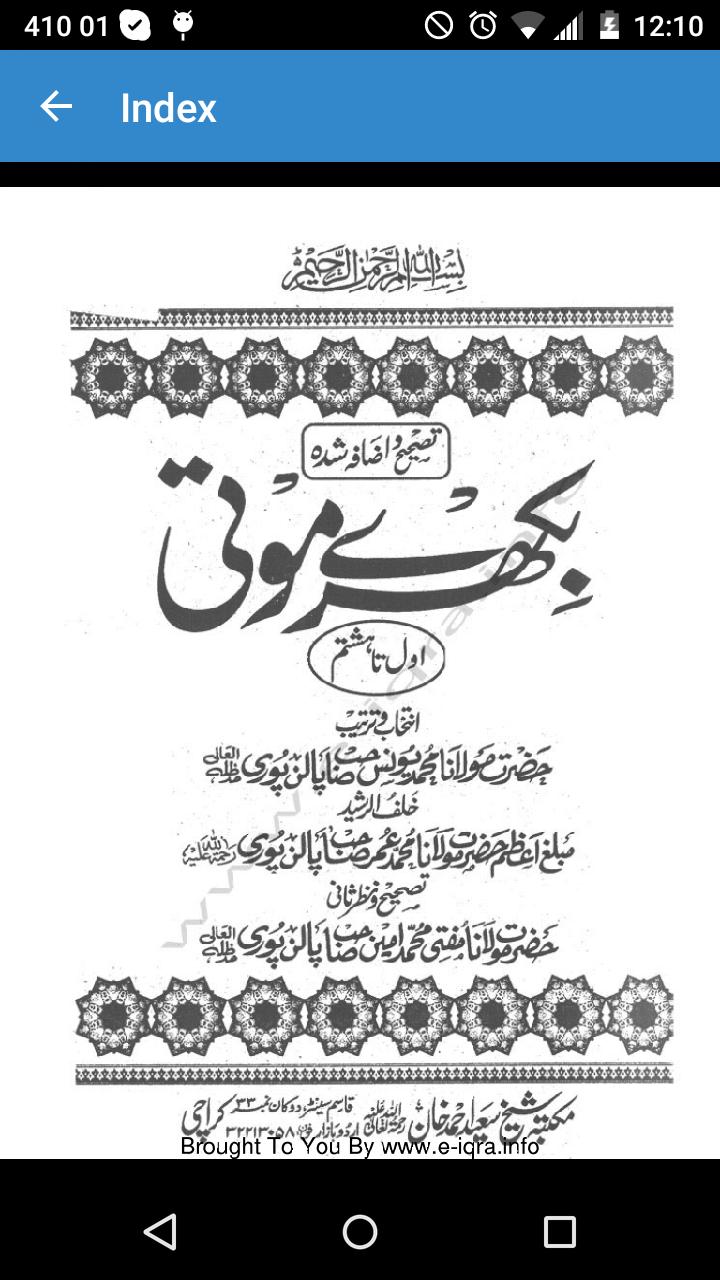 410 01 12:10
Index
بسم الله الرحمن الرحيم
تصحیح و اضافہ شدہ
بکھرے موتی
اول تا ہشتم
انتخاب و ترتیب
حضرت مولانا محمد یونس صاحب پالن پوری مدظلہ العالی
خلف الرشید
مبلغ اعظم حضرت مولانا محمد عمر صاحب پالن پوری رحمۃ اللہ علیہ
تصحیح و نظر ثانی
حضرت مولانا مفتی محمد امین صاحب پالن پوری مدظلہ العالی
مکتبہ شیخ سعید احمد خان رحمۃ اللہ تعالیٰ علیہ قاسم سینٹر، دوکان نمبر ۳۳ اردو بازار کراچی ۳۲۲۱۳۰۵۸
Brought To You By www.e-iqra.info